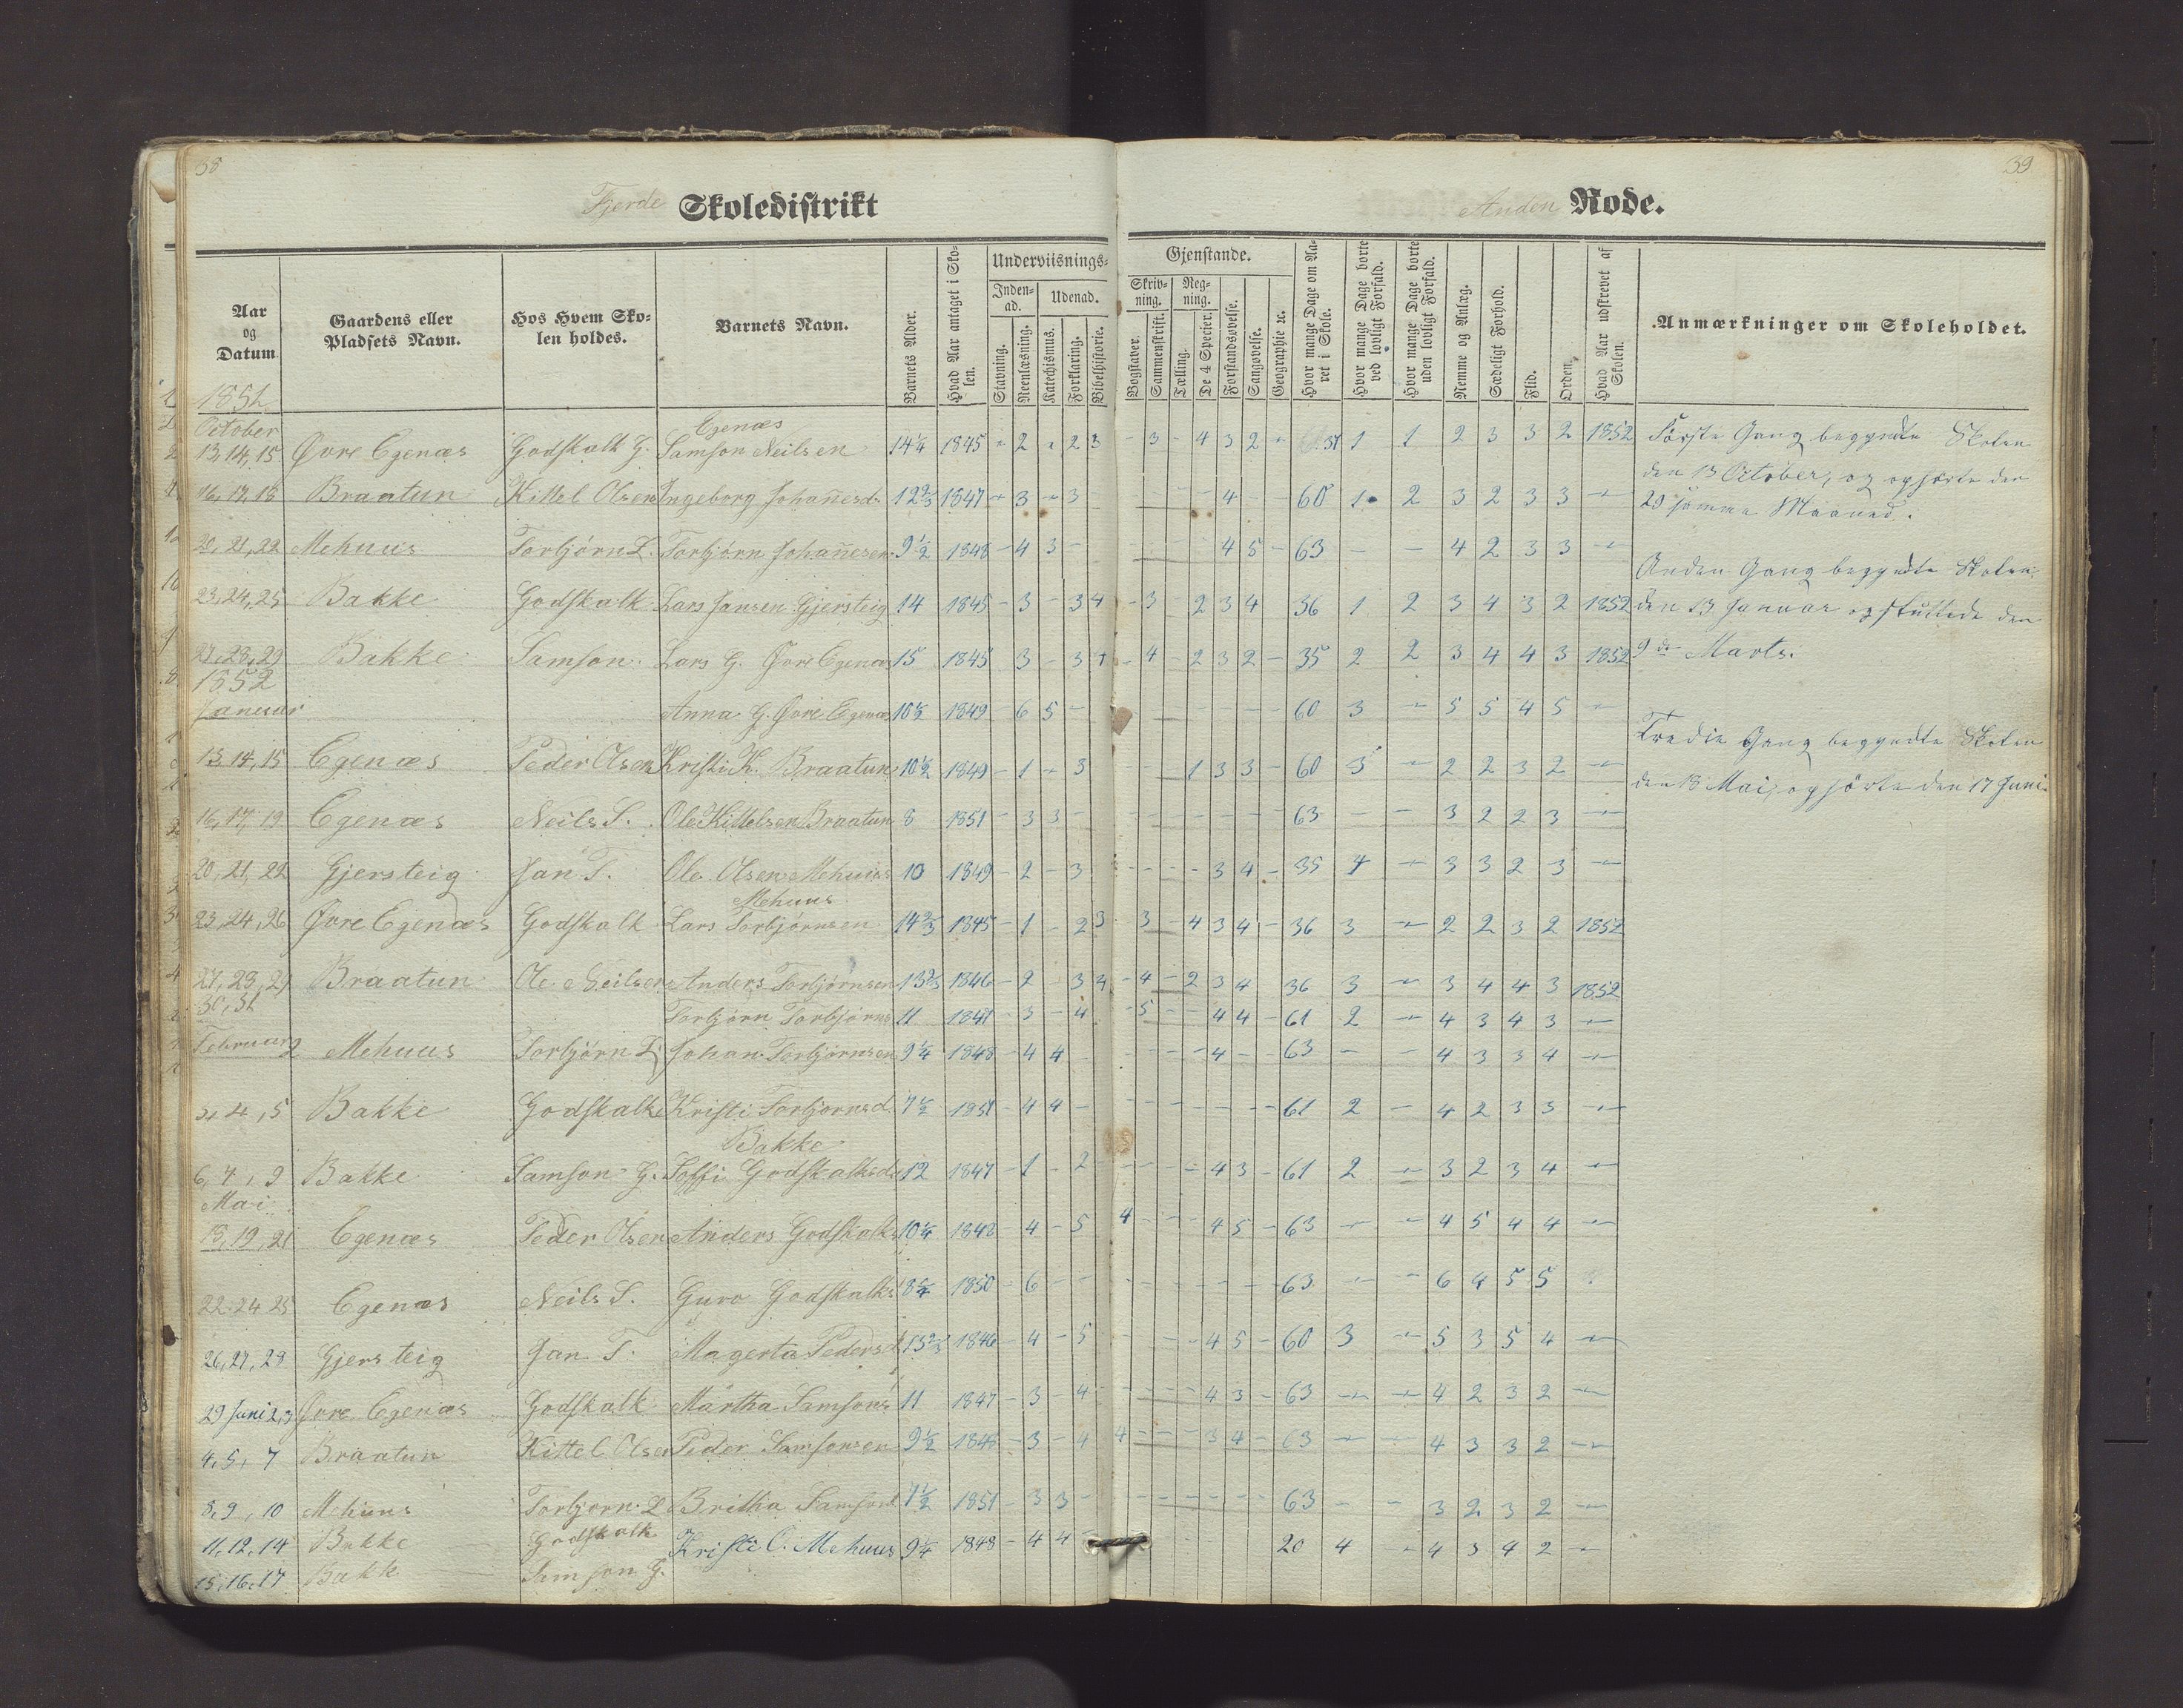 38
39
Fjerde Skoledistrikt
Anden Rode.
Aar og Datum.
Gaardens eller Pladsets Navn.
Hos Hvem Skolen holdes.
Barnets Navn.
Barnets Alder.
Hvad Aar antaget i Skolen.
Underviisnings-
Inden-ad.
Udenad.
Stavning.
Reenlæsning.
Katechismus.
Forklaring.
Bibelhistorie.
Gjenstande.
Skrivning.
Regning.
Bogstaver.
Sammenskrift.
Tælling.
De 4 Specier.
Forstandsøvelse.
Sangøvelse.
Geographie ec.
Hvor mange Dage om Aaret i Skole.
Hvor mange Dage borte ved lovligt Forfald.
Hvor mange Dage borte uden lovligt Forfald.
Nemme og Anlæg.
Sædeligt Forhold.
Flid.
Orden.
Hvad Aar udskrevet af Skolen.
Anmærkninger om Skoleholdet.
1851
October
Egenæs
13, 14, 15 Øvre Egenæs Godskalk G. Samson Neilsen 14 1/4 1845 - 2 - 2 3 - 3 - 4 3 2 - 37 1 1 2 3 3 2 1852
16, 17, 18 Braatun Kittel Olsen Ingeborg Johañesd. 12 2/3 1847 - 3 - 3 4 - - 60 1 2 3 2 3 3 -
20, 21, 22 Mehuus Torbjörn L. Torbjörn Johañesen 9 1/2 1848 - 4 3 - 4 5 - 63 - - 4 2 3 3 -
23, 24, 25 Bakke Godskalk Lars Jansen Gjersteig 14 1845 - 3 - 3 4 - 3 - 2 3 4 36 1 2 3 4 3 2 1852
27, 28, 29 Bakke Samson Lars G. Øvre Egenæs 15 1845 3 - 3 4 - 4 - 2 3 2 - 35 2 2 3 4 4 3 1852
1852
Januar
Anna G. Øvre Egenæs 10 1/2 1849 - 6 5 - 60 3 - 5 5 4 5 -
13, 14, 15 Egenæs Peder Olsen Kristi K. Braatun 10 1/2 1849 - 1 - 3 1 3 3 - 60 3 - 2 2 3 2 -
16, 17, 19 Egenæs Neils S. Ole Kittelsen Braatun 8 1851 - 3 3 - 63 - - 3 2 2 3 -
20, 21, 22 Gjersteig Jan T. Ole Olsen Mehuus 10 1849 - 2 - 3 - 3 4 - 35 4 - 3 3 2 3 -
Mehuus
23, 24, 26 Øvre Egenæs Godskalk Lars Torbjørnsen 14 2/3 1845 - 1 - 2 3 3 - 4 3 4 - 36 3 - 2 2 3 2 1852
27, 28, 29 Braatun Ole Neilsen Anders Torbjørnsen 13 2/3 1846 - 2 - 3 4 - 4 - 2 3 4 36 3 - 3 4 4 3 1852
30, 31
Torbjørn Torbjørns 11 1847 - 3 - 4 - 5 - - 4 4 - 61 2 - 4 3 4 3 -
Februar 2 Mehuus Torbjørn L. Johan Torbjørnsen 9 1/4 1848 - 4 4 - 4 - - 63 - - 4 3 3 4 -
3, 4, 5 Bakke Godskalk Kristi Torbjornsd. 7 1/2 1851 - 4 4 - 61 2 - 4 2 3 3 -
Bakke
6, 7, 9 Bakke Samson G. Soffi Godskalksd 12 1847 - 1 - 2 - 4 3 - 61 2 - 3 2 3 4 -
Mai
18, 19, 21 Egenæs Peder Olsen Anders Godskalks 10 1/4 1848 - 4 - 5 4 - - - 4 5 - 63 - - 4 5 4 4 -
22, 24, 25 Egenæs Neils S. Guro Godskalks 8 1850 - 6 - - 63 - - 6 4 5 5
26, 27, 28 Gjersteig Jan T. Magerta Pedersd 1846 - 4 - 5 - 4 5 - 60 3 - 5 3 5 4 -
29 Juni 2, 3 Øvre Egenæs Godskalk Martha Samsons 11 1847 - 3 - 4 - 4 3 - 63 - - 4 2 3 2 -
4, 5, 7 Braatun Kittel Olsen Peder Samsonsen 9 1/2 1848 - 3 - 4 4 - - - 3 4 - 63 - - 4 3 3 2 -
8, 9, 10 Mehuus Torbjorn L Britha Samsond 7 1/2 1851 - 3 3 - 63 - - 3 2 3 2 -
11, 12, 14 Bakke Godskalk Kristi O. Mehuus 9 1/4 1848 - 4 4 - 20 4 - 4 3 4 2 -
15, 16, 17 Bakk Samson G.
Förste Gang begyndte Skolen
den 13 October, og ophörte den
29 samme Maaned.
Anden Gang begyndte Skolen
den 13 Januar og sluttede den
9de Marts.
Tredie Gang begyndte Skolen
den 18 Mai, ophörte den 17 Juni.